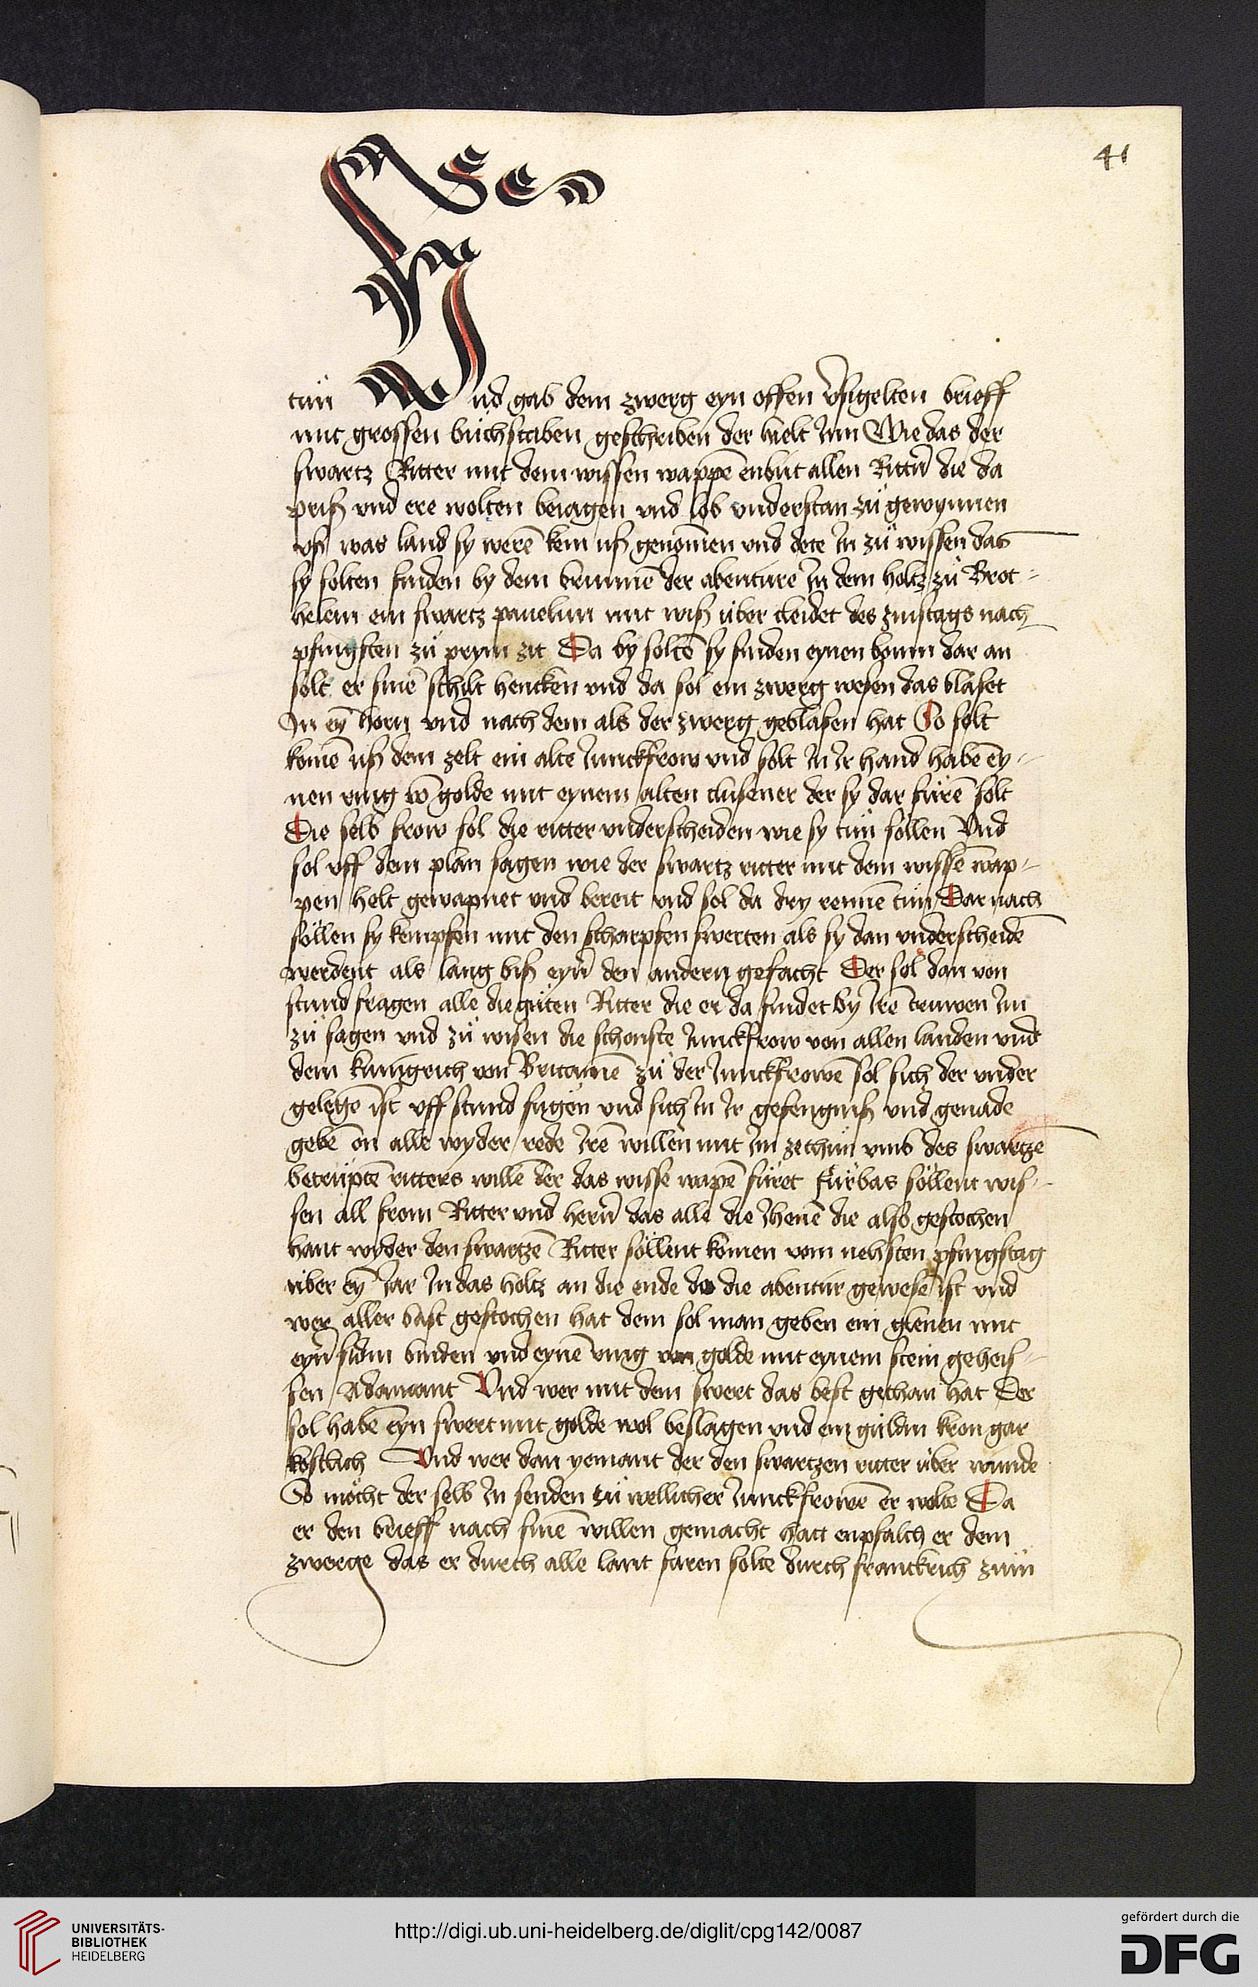 41
tün Und gab dem zwerg eyn offen v̄sigelten brieff
mit grossen büchstaben geschriben der hielt Inn Wie das der
swartz Ritter mit dem wissen wappē enbut allen Rittn̄ die da
priß vnd ere wolten beiagen vnd lob vnderstan zü gewynnen
vß was land sy werē kein uß genomen vnd dete In zü wissen das
sy solten finden by dem brunnē der abenture In dem holtz zü Brot-
helem ein swartz pauelun mit wiß über cleidet des zinstags nach
pfingsten zü prym zit Da by soltē sy finden eynen boum dar an
solt er sinē schilt hencken vnd da sol ein zwerg wesen das blaset
In eȳ horn vnd nach dem als der zwerg geblasen hat So solt
komē uß dem zelt ein alte Junckfrow vnd solt In Ir hand habē ey-
nen ring vō golde mit eynem alten clusener der sy dar fürē solt
Die selb frow sol die ritter vnderscheiden wie sy tün söllen Vnd
sol vff dem plan sagen wie der swartz ritter mit dem wissē wap-
pen helt gewapnet vnd bereit vnd sol da dry rennē tün Dar nach
söllen sy kempfen mit den scharpfen swerten als sy dan vnderscheidē
werdent als lang biß eyn̄ den andern gefacht Der sol dan von
stund fragen alle die güten Ritter die er da findet by Irē truwen Im
zü sagen vnd zü wisen die schonste Junckfrow von allen landen vnd
dem kunigrich von Britanīē zü der Junckfrowē sol sich der vnder
gelegē ist vff stund fügen vnd sich In Ir gefengniß vnd genade
gebē on alle wyder rede Irē willen mit Im ze thün vmb des swartzē
betrüptē ritters willē der das wisse wapē füret Fürbas söllent wis-
sen all from Ritter vnd hern̄ das alle die Jhenē die also gestochen
hant wyder den swartzē Ritter söllent komen vom nehsten pfingstag
über eȳ Jar In das holtz an die ende do die abentür gewesē ist vnd
wer aller bast gestochen hat dem sol man geben ein glenen mit
eyn̄ sidin binden vnd eynē ring von golde mit eynem stein geheis-
sen Adamant Vnd wer mit dem swert das best gethan hat Der
sol habē eyn swert mit golde wol beslagen vnd ein guldin kron gar
kostlich Vnd wer dan yemant der den swartzen ritter über wunde
So möcht der selb In senden zü wellicher Junckfrowē er wolte Da
er den brieff nach sinē willen gemacht hatt enpfalch er dem
zwerge das er durch alle lant faren solte durch franckrich zum
UNIVERSITÄTS-
BIBLIOTHEK
HEIDELBERG
http://digi.ub.uni-heidelberg.de/diglit/cpg142/0087
gefördert durch die
DFG